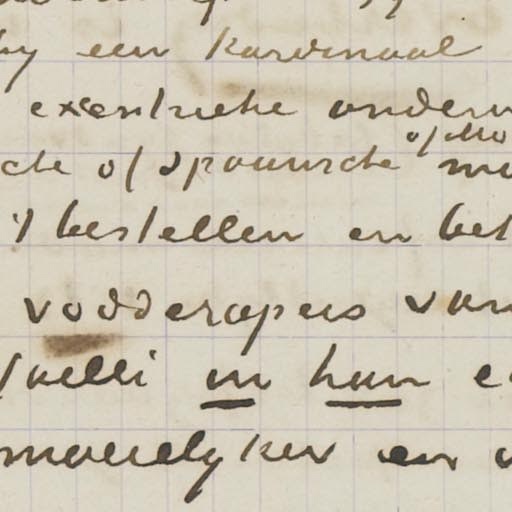 by een kardinaal
excentrieke onderw
che of Spaansche of Mo
't bestellen en bet
voddenrapers van
faelli in hun e
moeielyker en